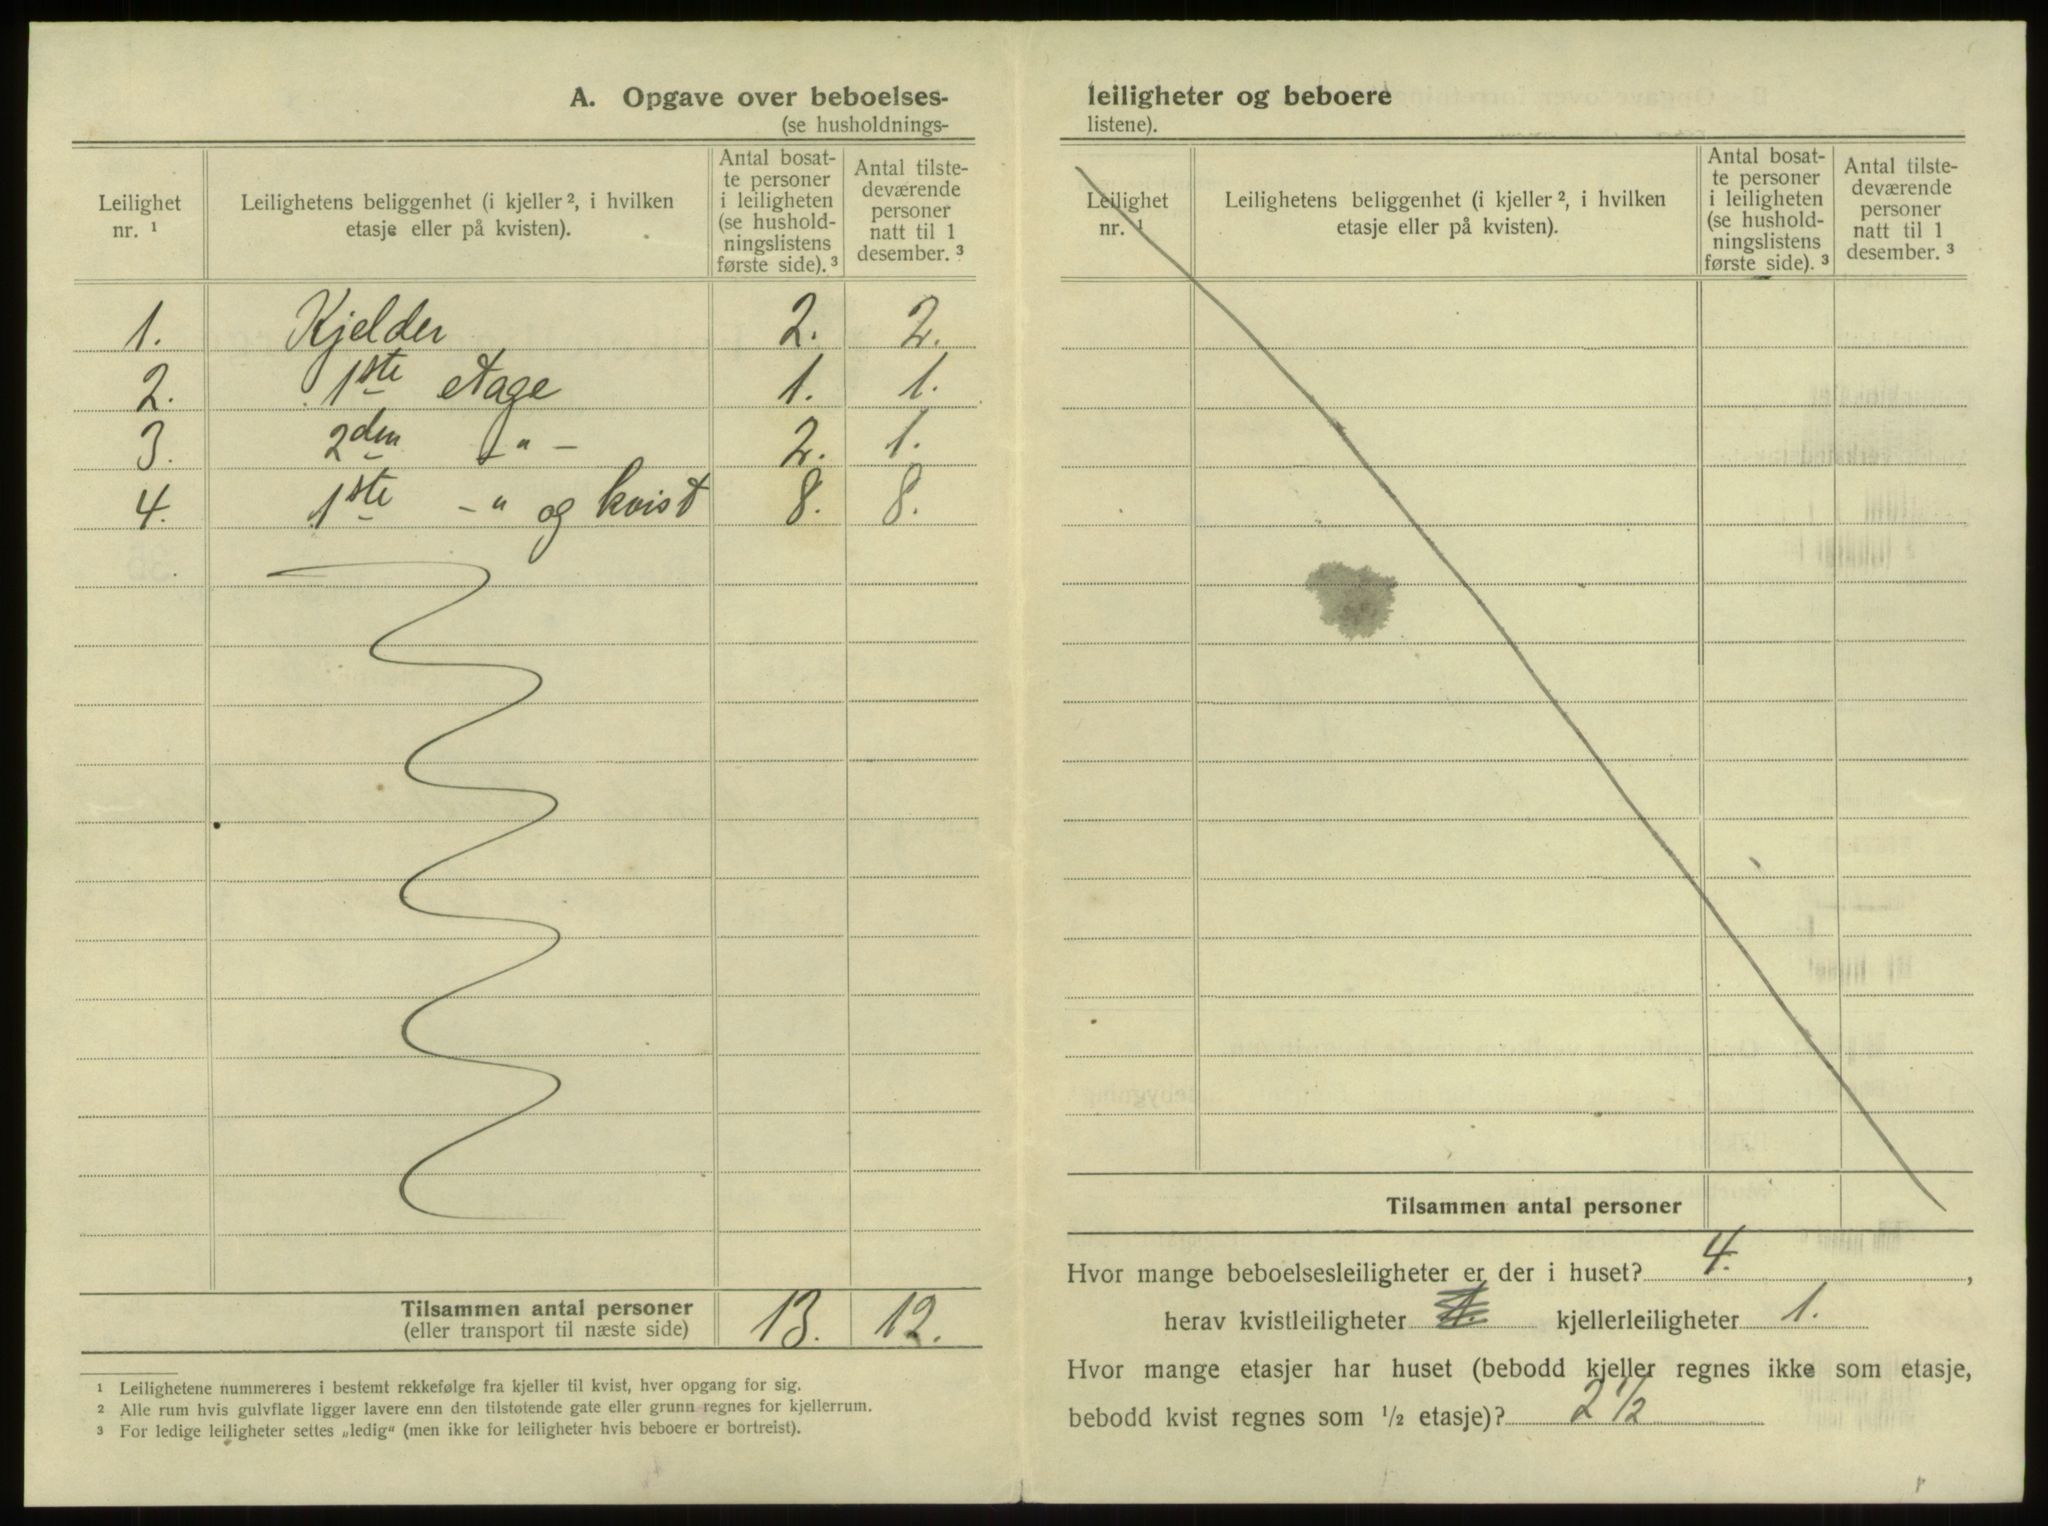 A. Opgave over beboelses-
(se husholdnings-
Leilighet
nr. ¹
Leilighetens beliggenhet (i kjeller ², i hvilken
etasje eller på kvisten).
Antal bosat-
te personer
i leiligheten
(se hushold-
ningslistens
første side). ³
Antal tilste-
deværende
personer
natt til 1
desember. ³
1. Kjelder 2. 2.
2. 1ste etage 1. 1.
3. 2den - " - 2. 1.
4. 1ste - " og kvist 8. 8.
Tilsammen antal personer 13. 12.
(eller transport til næste side)
¹ Leilighetene nummereres i bestemt rekkefølge fra kjeller til kvist, hver opgang for sig.
² Alle rum hvis gulvflate ligger lavere enn den tilstøtende gate eller grunn regnes for kjellerrum.
³ For ledige leiligheter settes „ledig“ (men ikke for leiligheter hvis beboere er bortreist).
leiligheter og beboere
listene).
Leilighet
nr. ¹
Leilighetens beliggenhet (i kjeller ², i hvilken
etasje eller på kvisten).
Antal bosat-
te personer
i leiligheten
(se hushold-
ningslistens
første side). ³
Antal tilste-
deværende
personer
natt til 1
desember. ³
Tilsammen antal personer
Hvor mange beboelsesleiligheter er der i huset? 4. ,
herav kvistleiligheter kjellerleiligheter 1.
Hvor mange etasjer har huset (bebodd kjeller regnes ikke som etasje,
bebodd kvist regnes som ½ etasje)? 2 ½